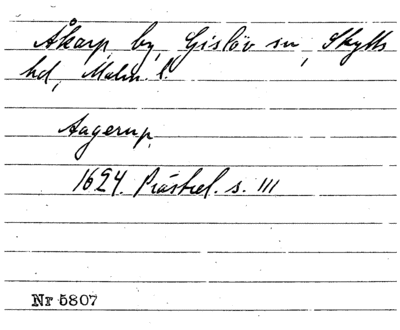 Åkarp by, Gislöv sn, Skytts
hd, Malm. l.
Aagerup.
1624. Prästrel. s. 111
Nr 5807